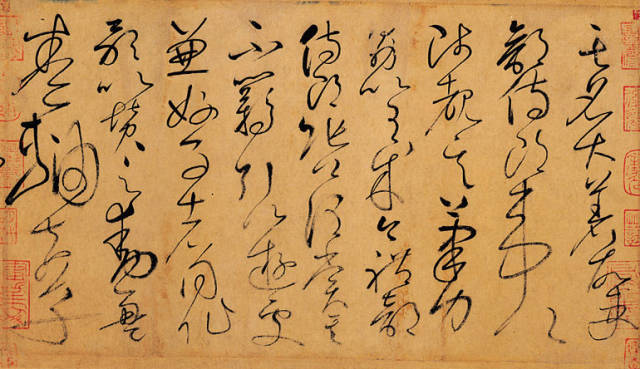 其名大著故吏
部侍郎韋公
陟覩其筆力
勗以有成今禮部
侍郎張公謂賞其
不羈引以遊處
兼好事者同作
歌以贊之動盈
卷軸夫草